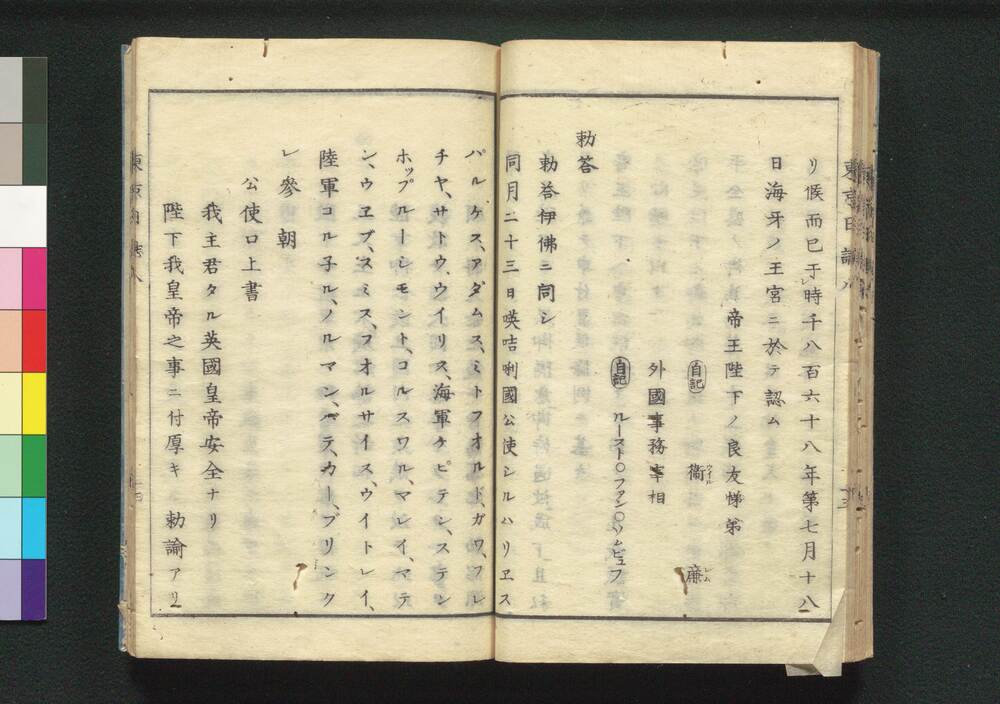 リ候而已于時千八百六十八年第七月十八
日海牙ノ王宮ニ於テ認ム
帝王陛下ノ良友悌弟
自記 衞ウイル 廉レム
外國事務宰相
自記 ルースト○ファン○リムビュフ
勅答
勅答伊佛ニ同シ
同月二十三日暎咭唎國公使シルハリヱス
パルケス、アダムス、ミトフオルド、ガワ、フレ
チヤ、サトウ、ウイリス、海軍ケピテン、ステン
ホップルーシモント、コルスワル、マレイ、マテ
ン、ウヱブ、スミス、フオルサイス、ウイトレイ、
陸軍コル子ル、ノルマン、バテ、カー、プリンク
レ參朝
公使口上書
我主君タル英國皇帝安全ナリ
陛下我皇帝之事ニ付厚キ 勅諭アリ
東京日誌八